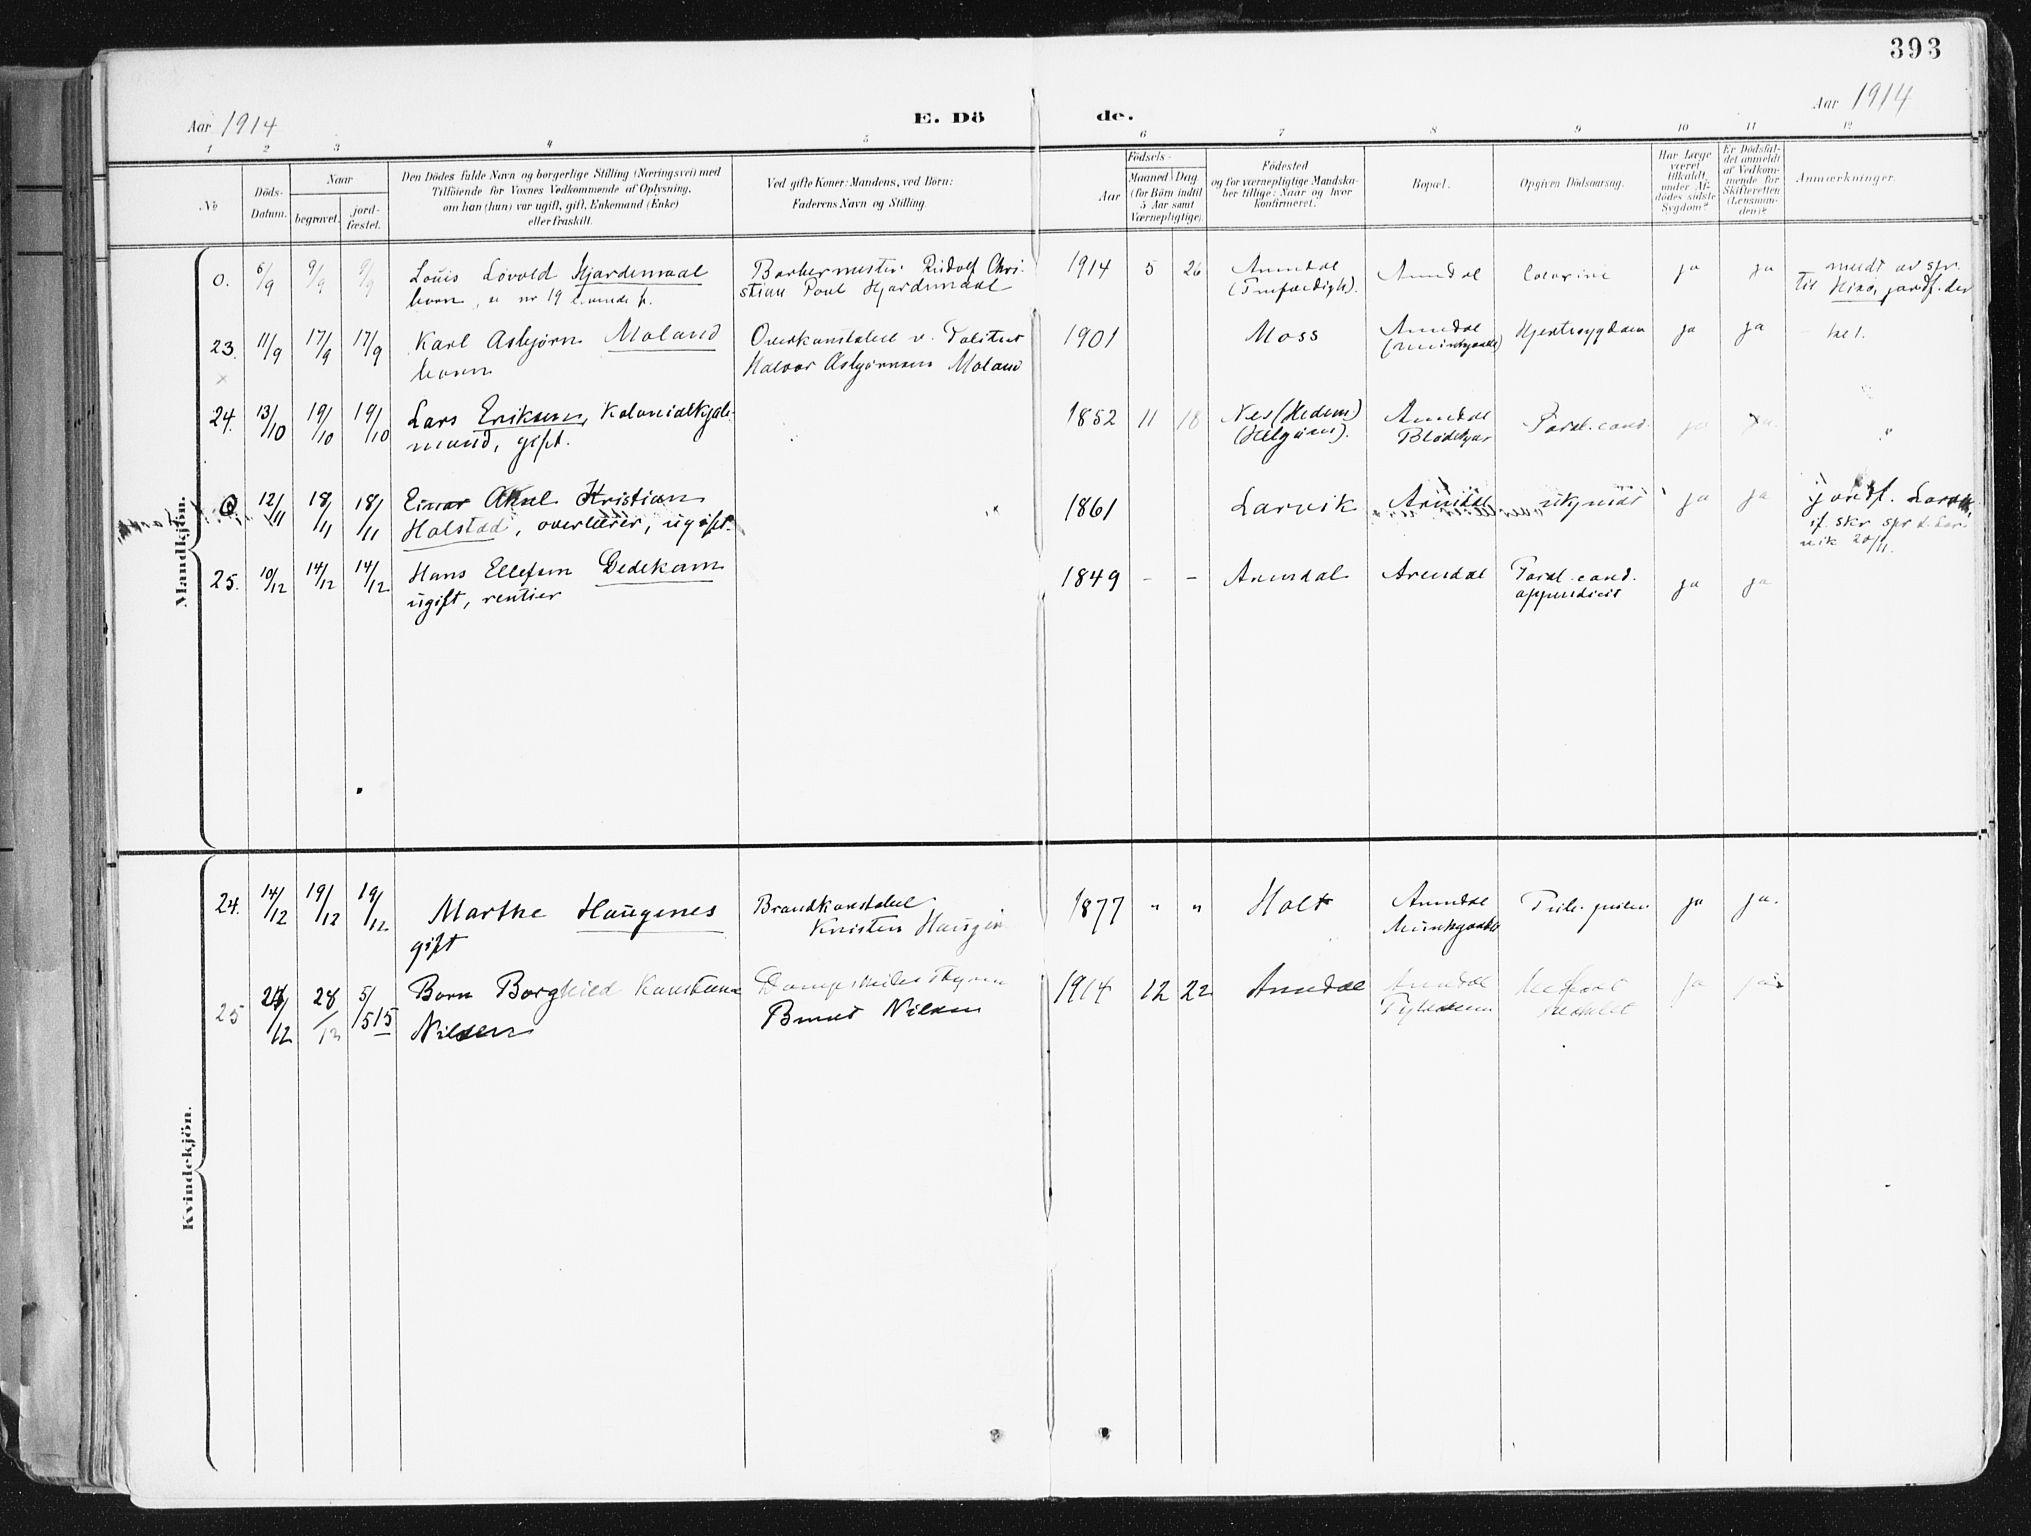 393
Aar 1914
E. Dö
de.
Aar 1914
1 2 3 4 5 6 7 8 9 10 11 12
No
Döds-
Datum.
Naar
begravet.
jord-
fæstet.
Den Dödes fulde Navn og borgerlige Stilling (Næringsvei) med
Tilföiende for Voxnes Vedkommende af Oplysning,
om han (hun) var ugift, gift, Enkemand (Enke)
eller fraskilt.
Ved gifte Koner: Mandens, ved Börn:
Faderens Navn og Stilling.
Födsels-
Aar
Maaned Dag
(for Börn indtil
5 Aar samt
Værnepligtige).
Födested
og for værnepligtige Mandska-
ber tillige: Naar og hvor
konfirmeret.
Bopæl.
Opgiven Dödsaarsag.
Har Læge
været
tilkaldt
under Af-
dödes sidste
Sygdom?
Er Dödsfal-
det anmeldt
af Vedkom-
mende for
Skifteretten
(Lensman-
den)?
Anmærkninger.
Mandkjön.
0. 6/9 9/9 9/9 Louis Lövold Hjardemaal
barn, nr 19
Barbermester Rudolf Chri-
stian Poul Hjardemaal
1914 5 26 Arendal
Arendal ja ja
til Hisø, jordf. der
23. 11/9 17/9 17/9 Karl Asbjørn Moland
barn
Overkonstabel v. Politiet
Halvor Asbjørnsen Moland
1901 Moss Arendal Hjertesygdom ja ja
24. 13/10 19/10 19/10 Lars Eriksen, Kolonialkjøb-
mand, gift.
1852 11 18 Nes (Hedem)
(Helgøen).
Arendal Paral. cord. ja ja.
0 12/11 18/11 18/11 Einar Aksel Kristian
Holstad, overlærer, ugift.
1861 Larvik Arendal ukjendt ja ja jordf. Larvik,
sf. skr spr i Lar-
vik 20/11.
25. 10/12 14/12 14/12 Hans Ellefsen Dedekam
ugift, rentier
1849 - - Arendal Arendal Paral. cord.
appendicit
ja ja
Kvindekjön.
24. 14/12 19/12 19/12 Marthe Haugenes
gift
Brandkonstabel
Kristen Haugen
1877 " " Holt Arendal
Munkgaden
ja ja.
25 /12 28/12 5/5 15 Barn Borghild Konstance
Nilsen
Bernt Nilsen
1914 12 22 Arendal Arendal
Tyholmen
ja ja